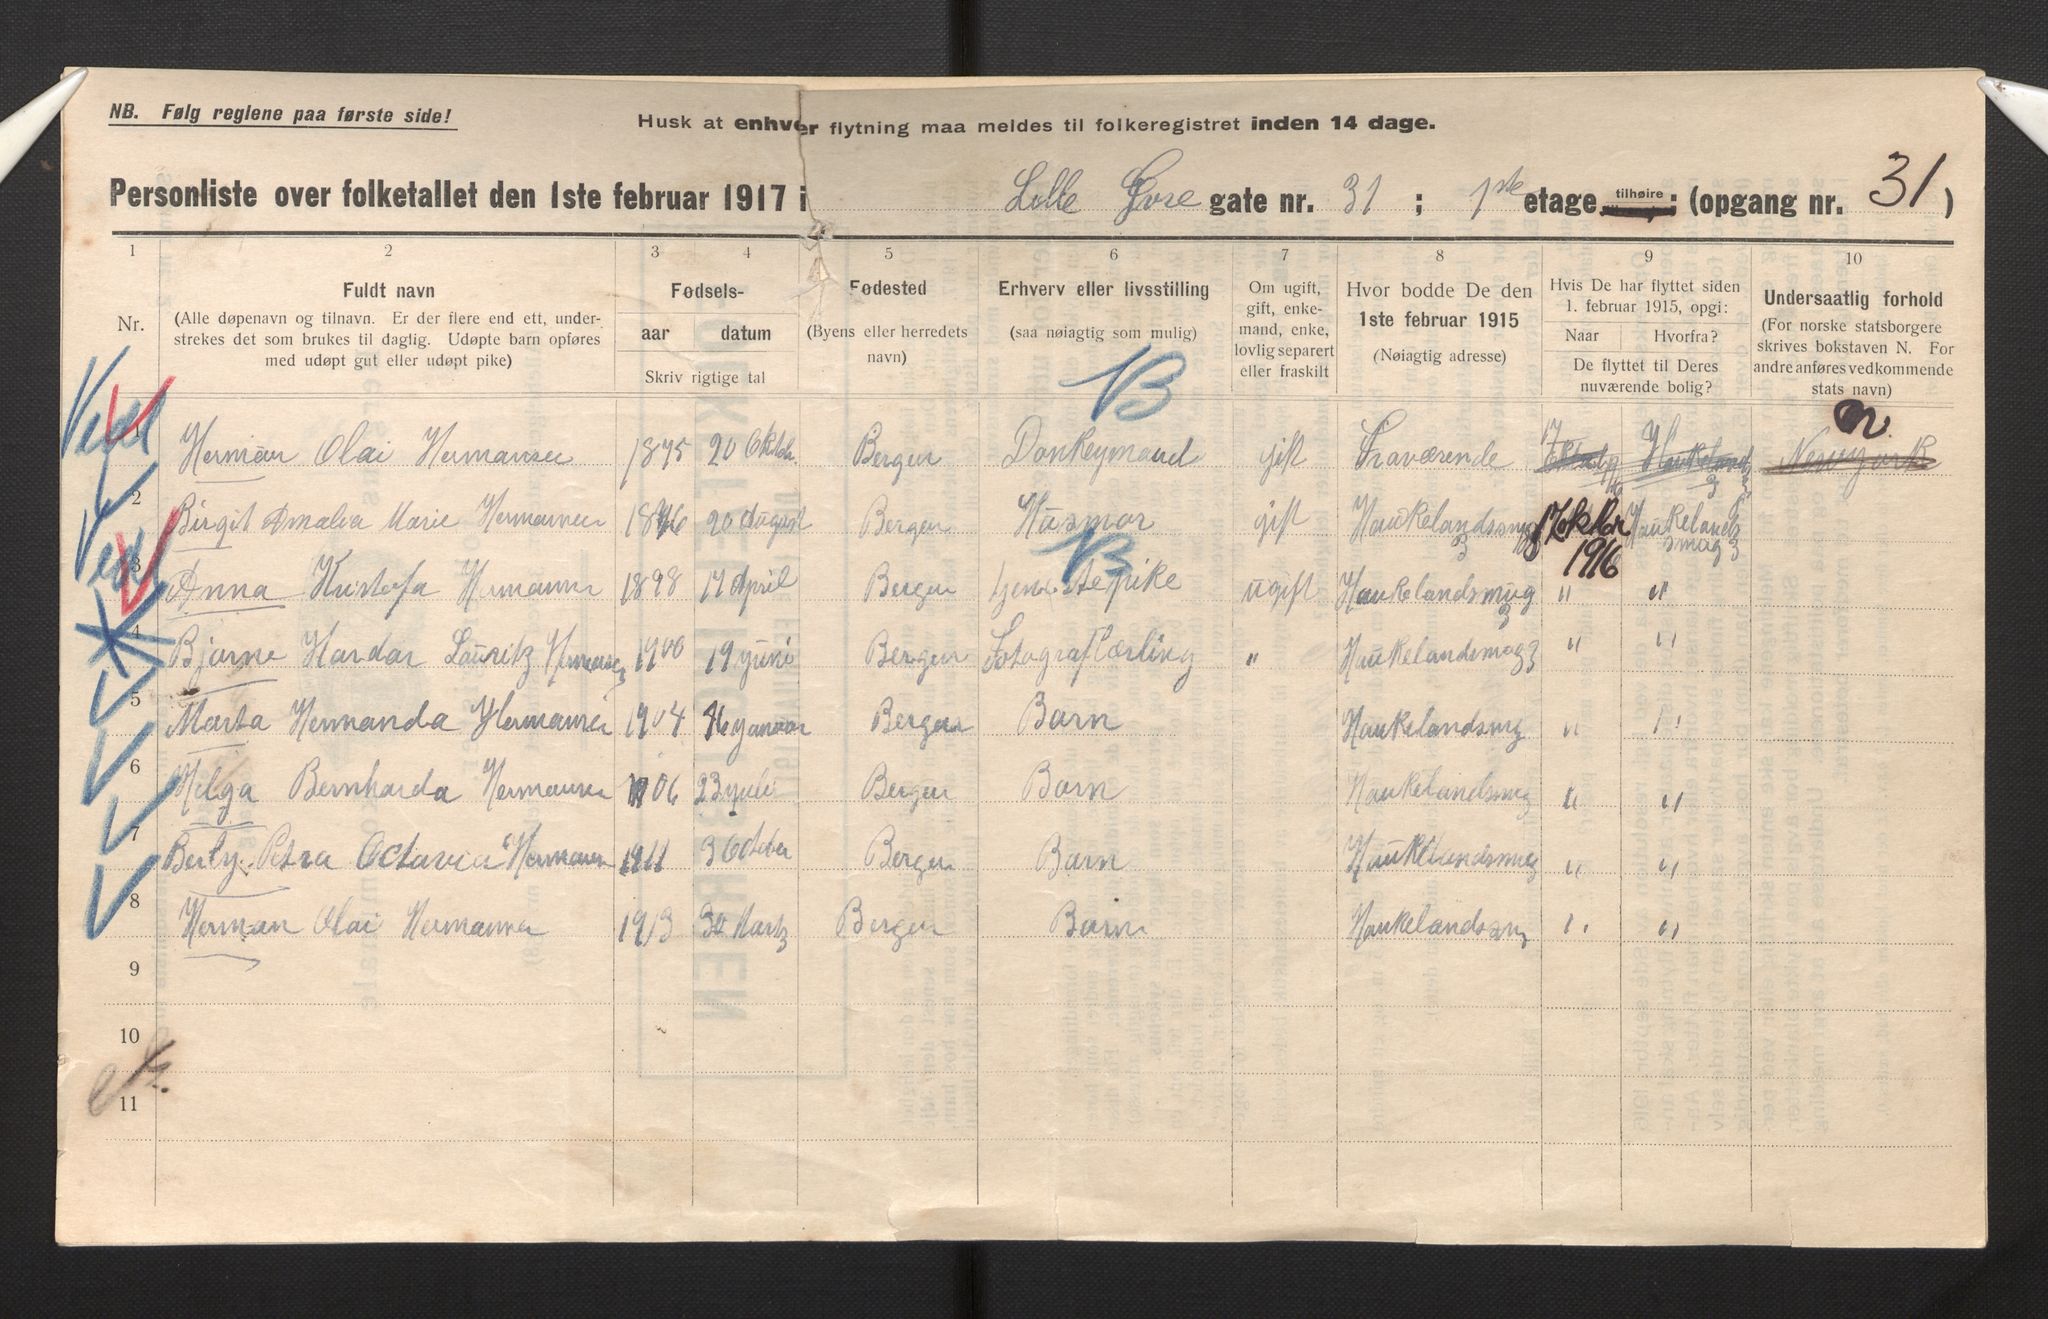 NB. Følg reglene paa første side!
Husk at enhver flytning maa meldes til folkeregistret inden 14 dage.
Personliste over folketallet den 1ste februar 1917 i Lille Øvre gate nr. 31 ; 1ste etage tilhøire : (opgang nr. 31)
1 2 3 4 5 6 7 8 9 10
Nr.
Fuldt navn
(Alle døpenavn og tilnavn. Er der flere end ett, under-
strekes det som brukes til daglig. Udøpte barn opføres
med udøpt gut eller udøpt pike)
Fødsels-
aar datum
Skriv rigtige tal
Fødested
(Byens eller herredets
navn)
Erhverv eller livsstilling
(saa nøiagtig som mulig)
Om ugift,
gift, enke-
mand, enke,
lovlig separert
eller fraskilt
Hvor bodde De den
1ste februar 1915
(Nøiagtig adresse)
Hvis De har flyttet siden
1. februar 1915, opgi:
Naar Hvorfra?
De flyttet til Deres
nuværende bolig?
Undersaatlig forhold
(For norske statsborgere
skrives bokstaven N. For
andre anføres vedkommende
stats navn)
B
1 Herman Olai Hermansen 1875 20 Oktbr. Bergen Donkeymand gift Fraværende Haukelandsmg Newyork n.
2 Birgit Amalia Marie Hermansen 1876 20 August Bergen Husmor gift Haukelandssmg 7 oktbr 1916 Haukelandsmag
B
3 Anna Kristofa Hermansen 1898 17 April Bergen tjenestepike ugift Haukelandsmug " "
4 Bjarne Hardar Lauritz Hermansen 1900 19 juni Bergen Fotograflærling " Haukelandsmag " "
5 Marta Hermanda Hermansen 1904 16 januar Bergen Barn Haukelandsmg " "
6 Helga Bernharda Hermansen 1906 23 juli Bergen Barn Haukelandsmug " "
7 Berly Petra Octavia Hermansen 1911 3 October Bergen Barn Haukelandsmug " "
8 Herman Olai Hermansen 1913 30 Marts Bergen Barn Haukelandsmg " "
9
10
11